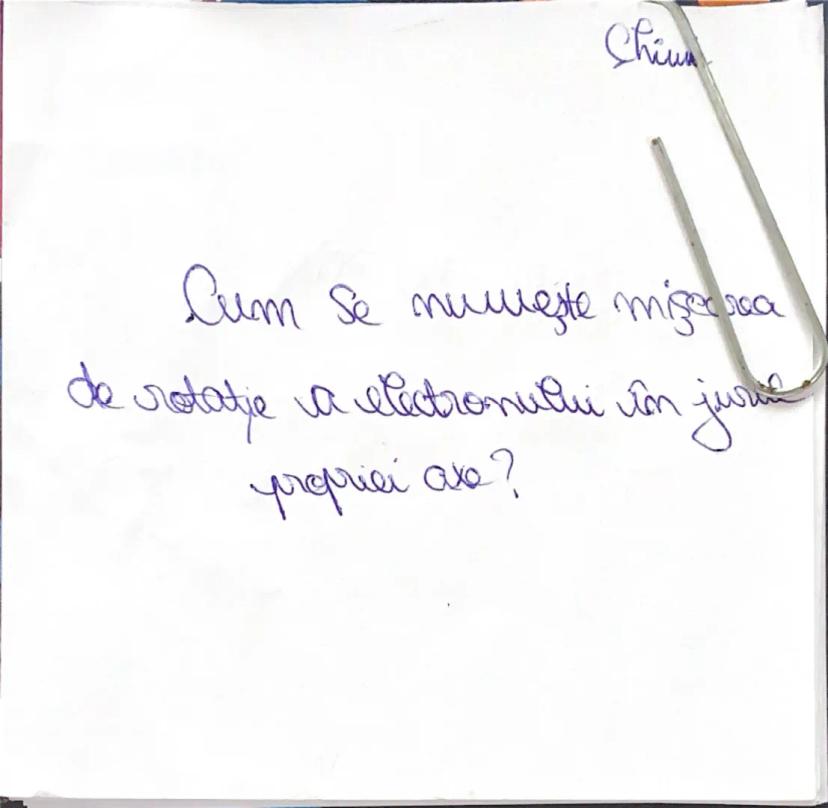 Chim
Cum se numește mișcarea
de rotație a electronului în jurul
propriei axe?